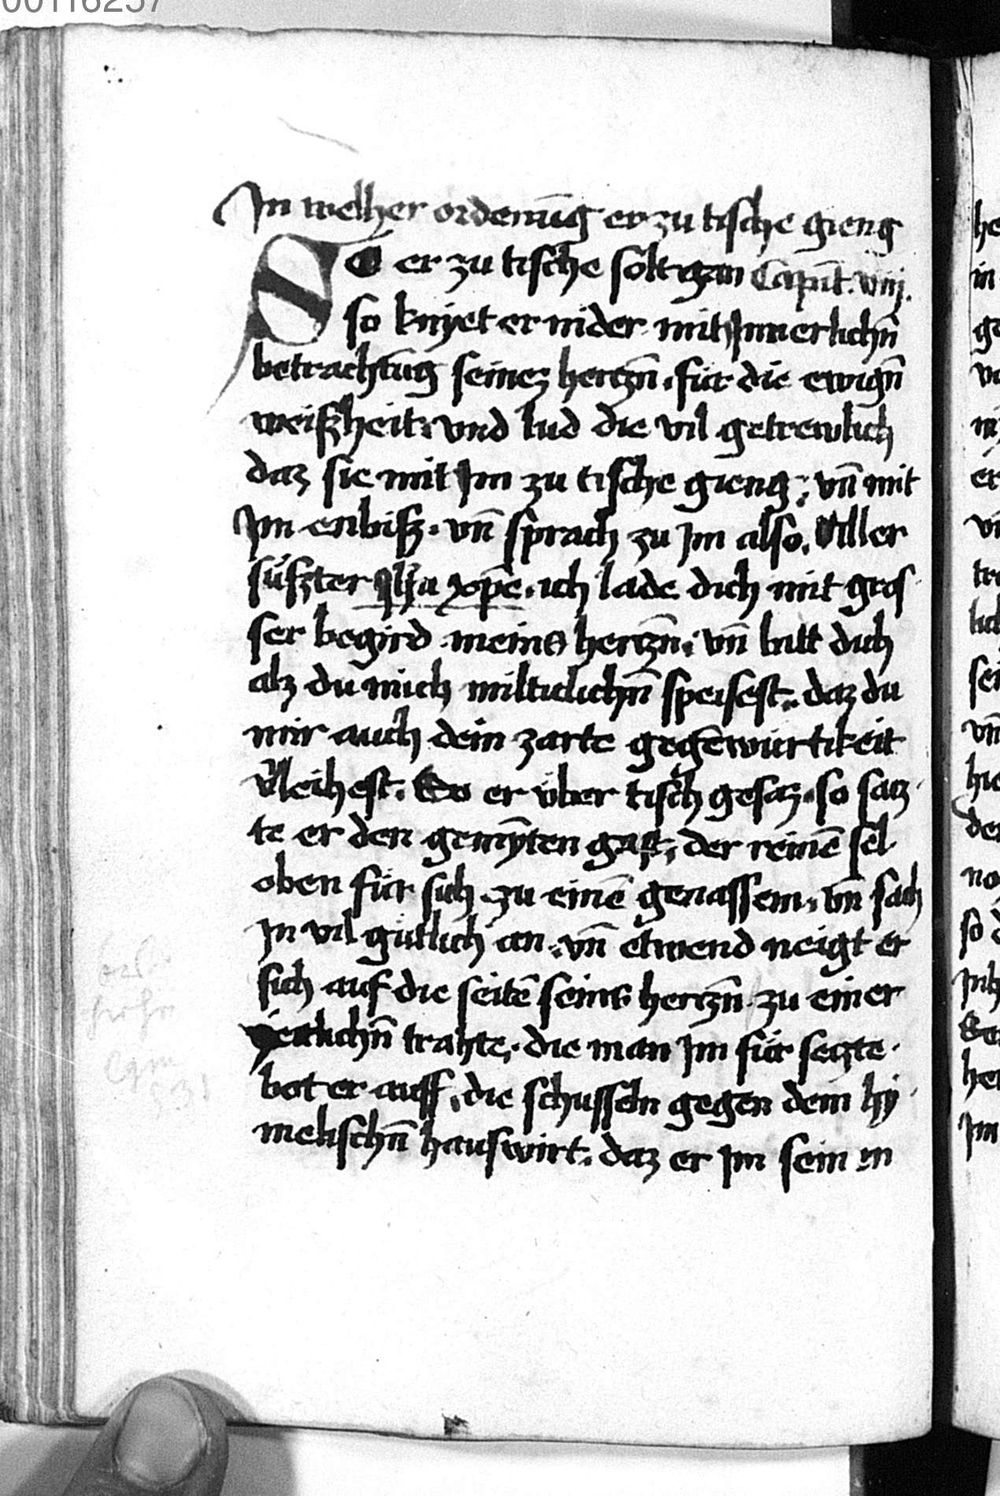 00116257
In welher ordenūg er zu tische gieng
SO er zu tische solt gan Capit. viij.
so knyet er nider mit Innerlichn̄
betrachtūg seinez hertzn̄. für die ewign̄
weißheit. vnd lud die vil getrewlich
daz sie mit Im zu tische gieng. vn̄ mit
Im enbiß. vn̄ sprach zu Im also. Aller
süszter Ihu xp̄e. ich lade dich mit gros
ser begird meins hertzn̄. vn̄ bitt dich
alz du mich milticlichn̄ speisest. daz du
mir auch dein zarte gegēwürtikeit
v̉leihest. So er vber tisch gesaz. so satz
te er den gemȳten gast, der reinē sel
oben für sich zu einē genassem. vn̄ sach
In vil gutlich an. vn̄ etwend neigt er
sich auf die seitē seins hertzn̄. zu einer
yeitlichn̄ trahte. die man Im für setzte.
bot er auff. die schusseln gegen dem hy
melischn̄ hauswirt. daz er Im sein